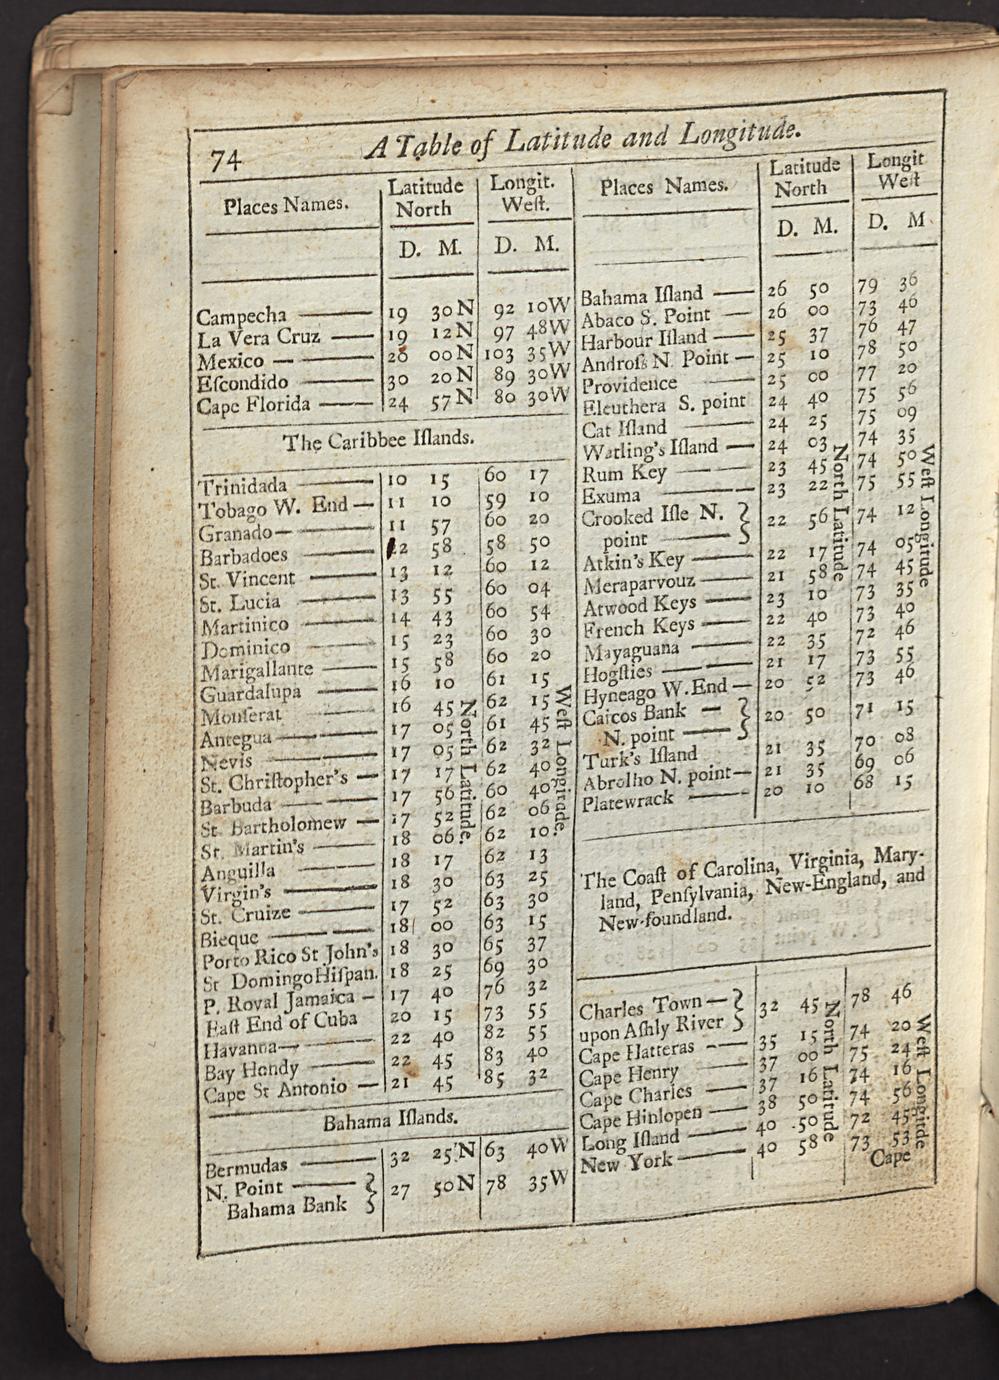 74 A Table of Latitude and Longitude.
Places Names. Latitude North Longit. Weſt.
D. M. D. M.
Campecha 19 30 N 92 10 W
La Vera Cruz 19 12 N 97 48 W
Mexico 20 00 N 103 35 W
Eſcondido 30 20 N 89 30 W
Cape Florida 24 57 N 80 30 W
The Caribbee Iſlands.
Trinidada 10 15 60 17
Tobago W. End 11 10 59 10
Granado 11 57 60 20
Barbadoes 12 58 58 50
St. Vincent 13 12 60 12
St. Lucia 13 55 60 04
Martinico 14 43 60 54
Dominico 15 23 60 30
Marigallante 15 58 60 20
Guardalupa 16 10 61 15
Monſerat 16 45 62 15
Antegua 17 05 61 45
Nevis 17 05 62 32
St. Chriſtopher's 17 17 62 40
Barbuda 17 56 60 40
St. Bartholomew 17 52 62 06
St. Martin's 18 06 62 10
Anguilla 18 17 62 13
Virgin's 18 30 63 25
St. Cruize 17 52 63 30
Bieque 18 00 63 15
Porto Rico St John's 18 30 65 37
St Domingo Hiſpan. 18 25 69 30
P. Royal Jamaica 17 40 76 32
Eaſt End of Cuba 20 15 73 55
Havanna 22 40 82 55
Bay Hondy 22 45 83 40
Cape St Antonio 21 45 85 32
North Latitude.
Weſt Longitude.
Bahama Iſlands.
Bermudas 32 25 N 63 40 W
N. Point } 27 50 N 78 35 W
Bahama Bank
Places Names. Latitude North Longit Weſt
D. M. D. M
Bahama Iſland 26 50 79 36
Abaco S. Point 26 00 73 46
Harbour Iſland 25 37 76 47
Androſs N. Point 25 10 78 50
Providence 25 00 77 20
Eleuthera S. point 24 40 75 56
Cat Iſland 24 25 75 09
Watling's Iſland 24 03 74 35
Rum Key 23 45 74 50
Exuma 23 22 75 55
Crooked Iſle N. } 22 56 74 12
point
Atkin's Key 22 17 74 05
Meraparvouz 21 58 74 45
Atwood Keys 23 10 73 35
French Keys 22 40 73 40
Mayaguana 22 35 72 46
Hogſties 21 17 73 55
Hyneago W. End 20 52 73 46
Caicos Bank } 20 50 71 15
N. point
Turk's Iſland 21 35 70 08
Abrolho N. point 21 35 69 06
Platewrack 20 10 68 15
North Latitude
Weſt Longitude
The Coaſt of Carolina, Virginia, Mary-
land, Penſylvania, New-England, and
New-foundland.
Charles Town } 32 45 78 46
upon Aſhly River
Cape Hatteras 35 15 74 20
Cape Henry 37 00 75 24
Cape Charles 37 16 74 16
Cape Hinlopen 38 50 74 56
Long Iſland 40 50 72 45
New York 40 58 73 53
North Latitude
Weſt Longitde
Cape